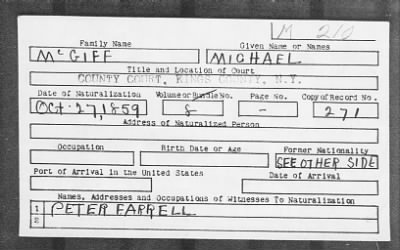 M 210
Family Name Given Name or Names
McGIFF MICHAEL
Title and Location of Court
COUNTY COURT, KINGS COUNTY, N.Y.
Date of Naturalization Volume or Bundle No. Page No. Copy of Record No.
OCT. 27, 1859 8 - 271
Address of Naturalized Person
Occupation Birth Date or Age Former Nationality
SEE OTHER SIDE
Port of Arrival in the United States Date of Arrival
Names, Addresses and Occupations of Witnesses To Naturalization
1 PETER FARRELL
2